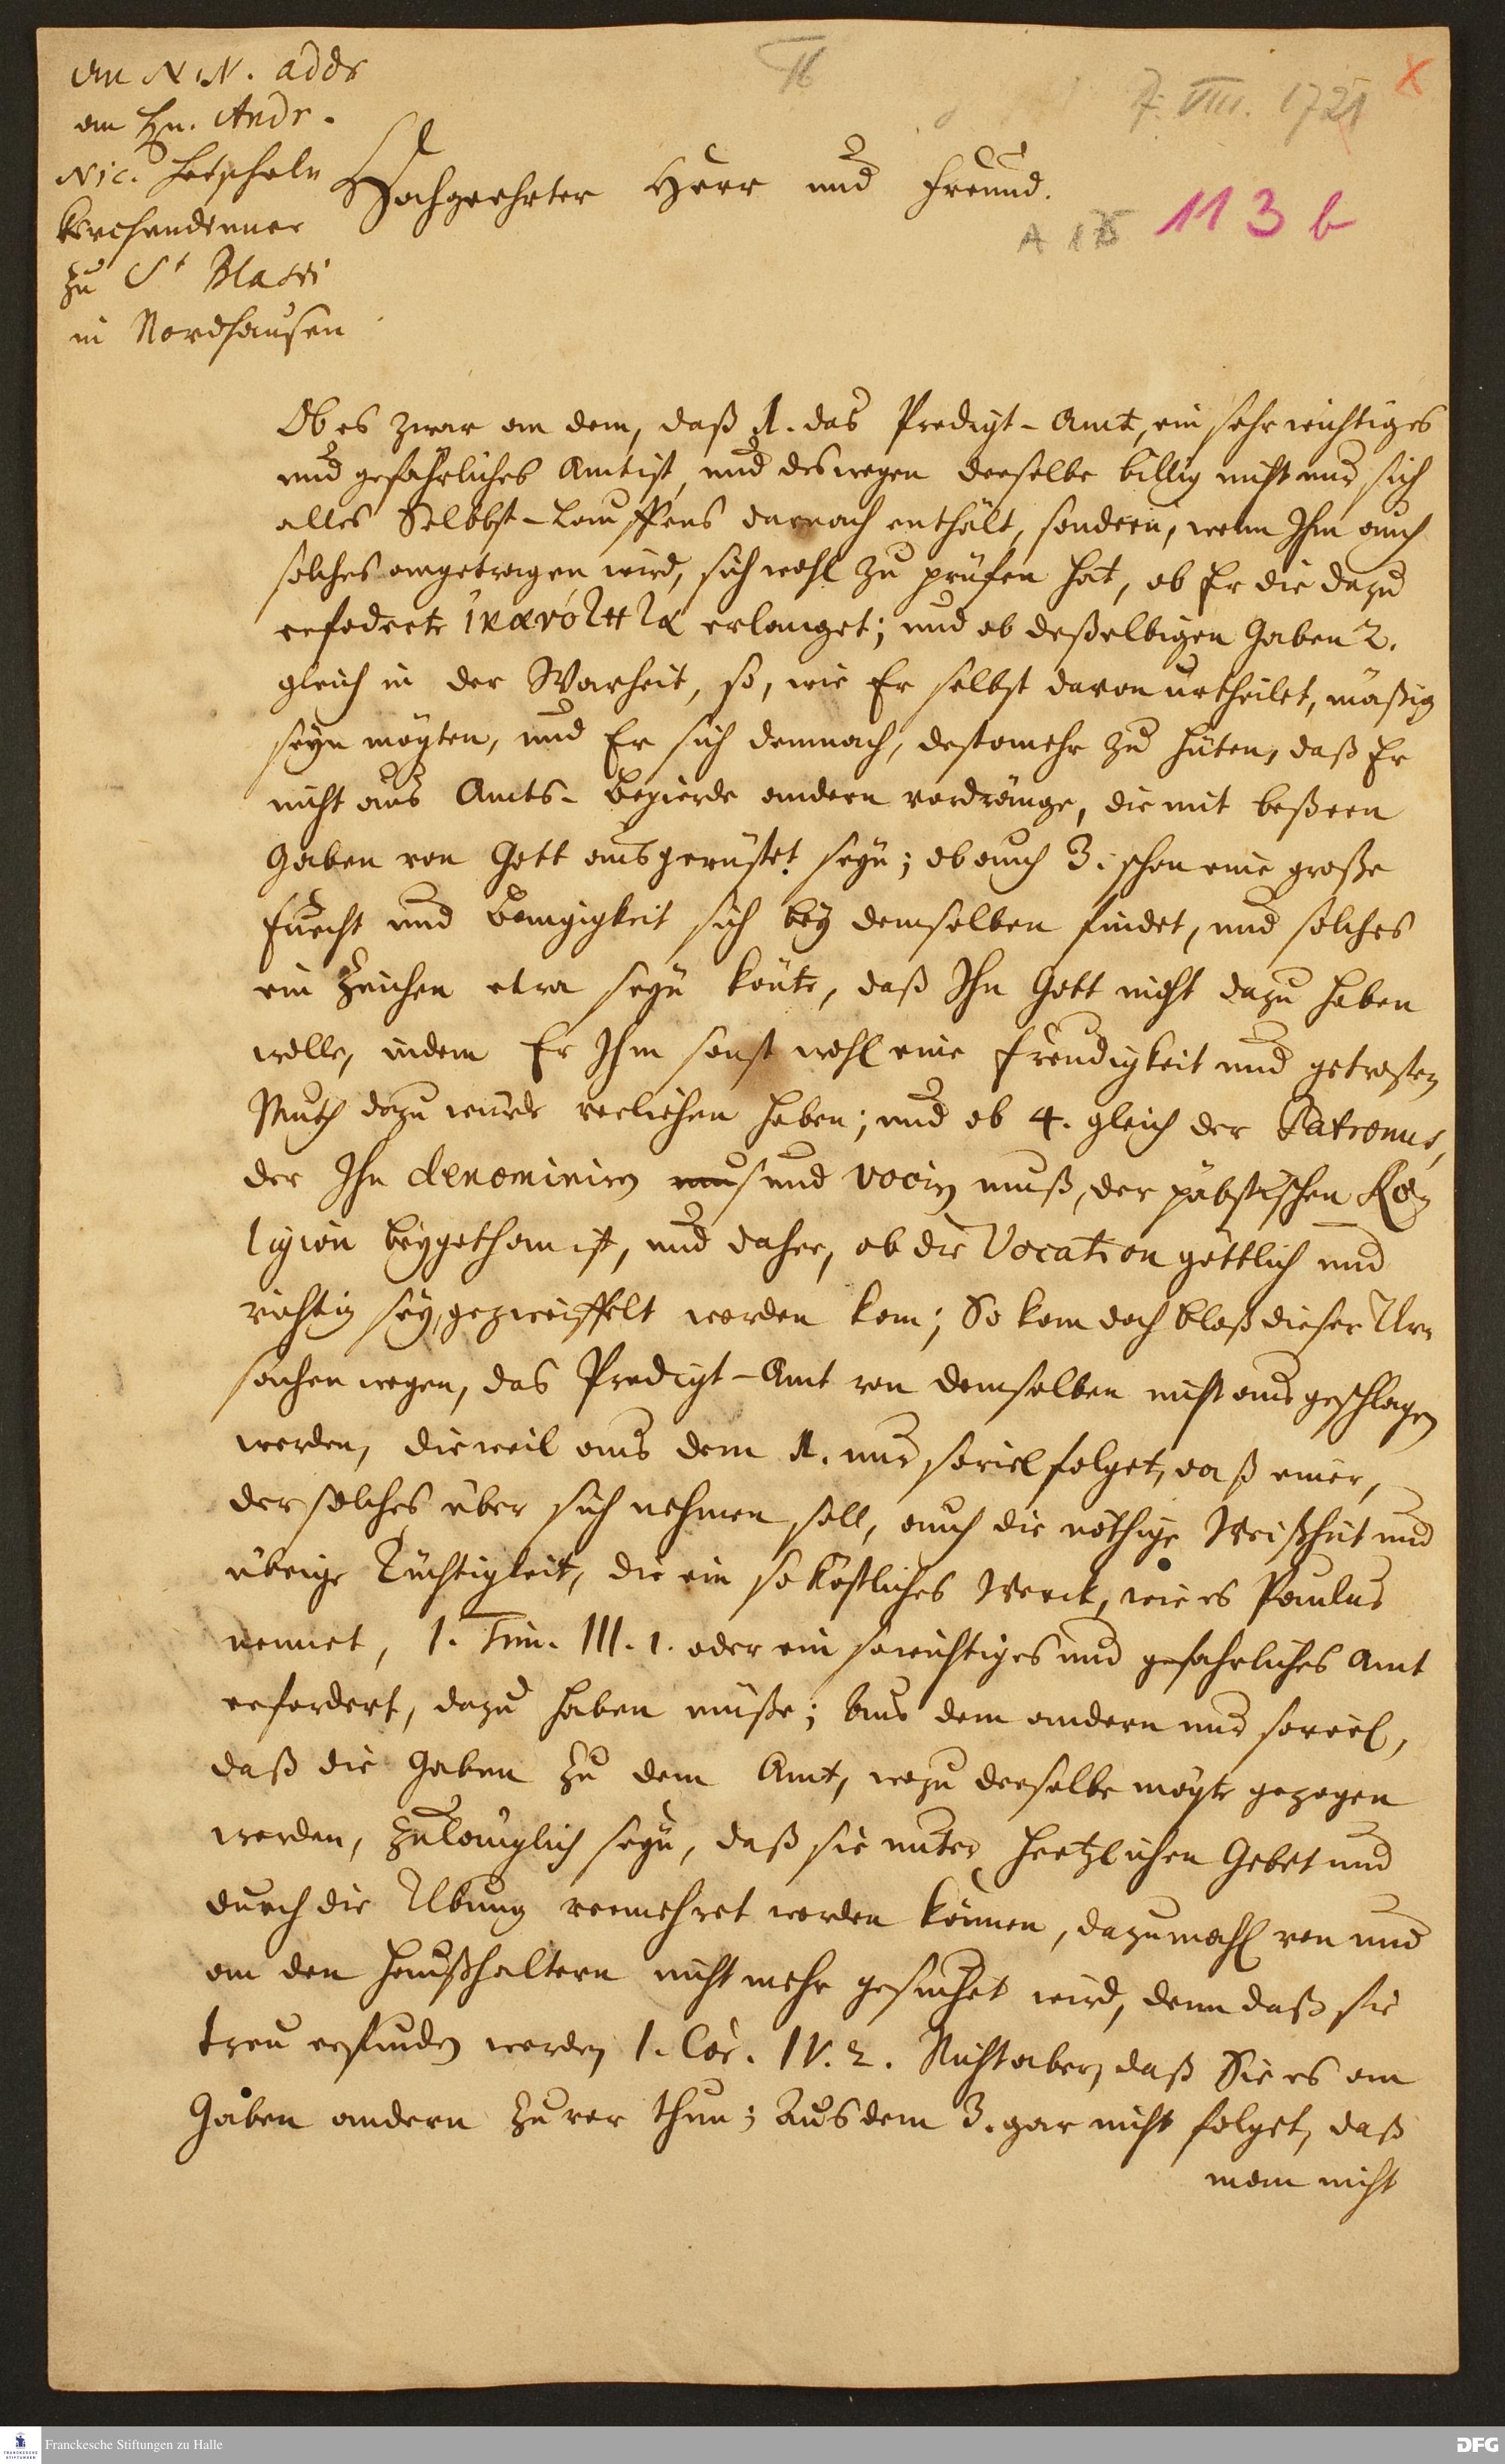 An N. N. addr
an Hn. Andr.
Nic. Hetscheln
Kirchendiener
zu St Blasii
in Nordhausen
II
7. VIII. 1721
x
A 113 b
Hochgeehrter Herr und Freund.
Ob es zwar an dem, daß 1. das Predigt-Amt, ein sehr wichtiges
und gefährliches Amt ist, und deswegen derselbe billig nicht nur sich
alles Selbbst-Lauffens darnach enthält, sondern, wenn Ihm auch
solches angetragen wird, sich wohl zu prüfen hat, ob Er die dazu
erfoderte ἱκανότητα erlanget; und ob deßelbigen Gaben 2.
gleich in der Warheit, so, wie Er selbst davon urtheilet, mäßig
seyn mögten, und Er sich demnach, destomehr zu hüten, daß Er
nicht aus Amts-Begierde andern vordränge, die mit beßern
Gaben von Gott ausgerüstet seyn; ob auch 3. schon eine große
Furcht und Bangigkeit sich bey demselben findet, und solches
ein Zeichen etwa seyn könte, daß Ihn Gott nicht dazu haben
wolle, indem Er Ihm sonst wohl eine Freudigkeit und getrosten
Muth dazu würde verliehen haben; und ob 4. gleich der Patronus,
der Ihn denominiren und vociren muß, der päbstischen Re-
ligion beygethan ist, und daher, ob die Vocation göttlich und
richtig sey, gezweiffelt werden kan; So kan doch bloß dieser Ur-
sachen wegen, das Predigt-Amt von demselben nicht ausgeschlagen
werden, dieweil aus dem 1. nur soviel folget, daß einer,
der solches über sich nehmen soll, auch die nöthige Weißheit und
übrige Tüchtigkeit, die ein so köstliches Werck, wie es Paulus
nennet, 1. Tim. III. 1. oder ein so wichtiges und gefahrliches Amt
erfordert, dazu haben müße; Aus dem andern nur soviel,
daß die Gaben zu dem Amt, wozu derselbe mögte gezogen
werden, zulänglich seyn, daß sie unter hertzlichen Gebet und
durch die Ubung vermehret werden können, dazumahl von und
an den Haußhaltern nicht mehr gesuchet wird, denn daß sie
treu erfunden werden 1. Cor. IV. 2. Nicht aber, daß Sie es an
Gaben andern zuvor thun; Aus dem 3. gar nicht folget, daß
man nicht
Franckesche Stiftungen zu Halle
DFG